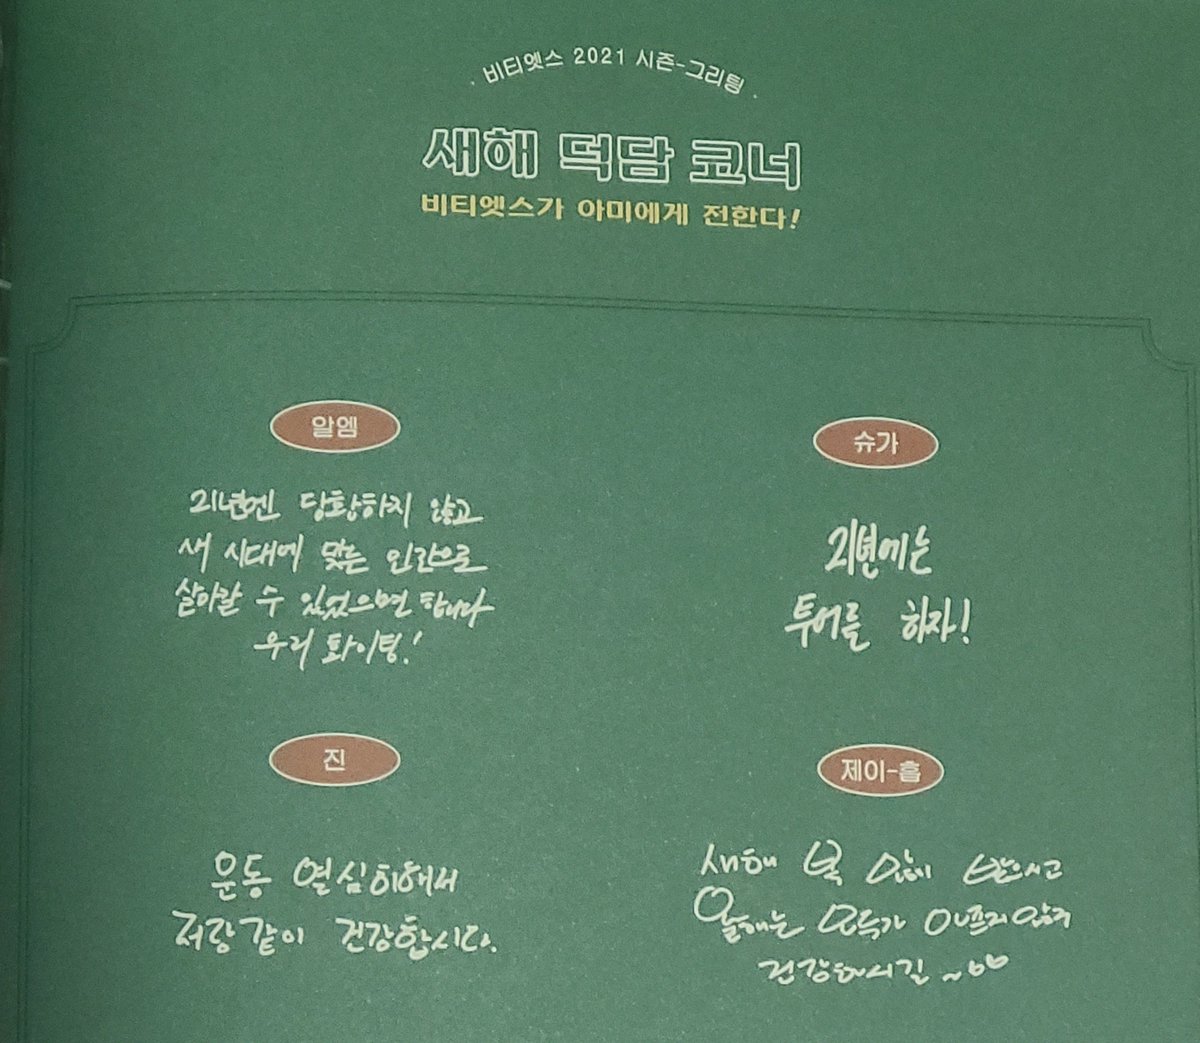 · 비티엣스 2021 시즌-그리팅 ·
새해 덕담 코너
비티엣스가 아미에게 전한다!
알엠
21년엔 당황하지 않고
새 시대에 맞는 인간으로
살아갈 수 있었으면 합니다
우리 화이팅!
슈가
21년에는
투어를 하자!
진
운동 열심히해서
저랑같이 건강합시다.
제이-홉
새해 복 많이 받으시고
올해는 모두가 아프지않고
건강하시길 ~ㅎㅎ